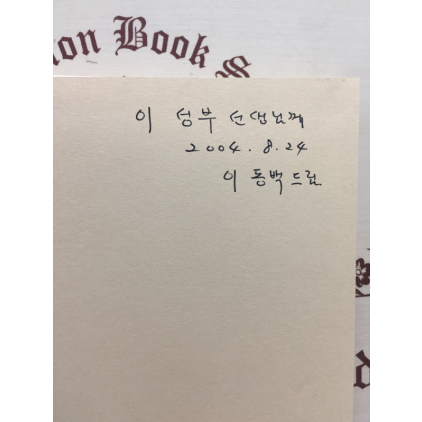 ion Book S
이 성부 선생님께
2004. 8. 24
이 동백 드림
d